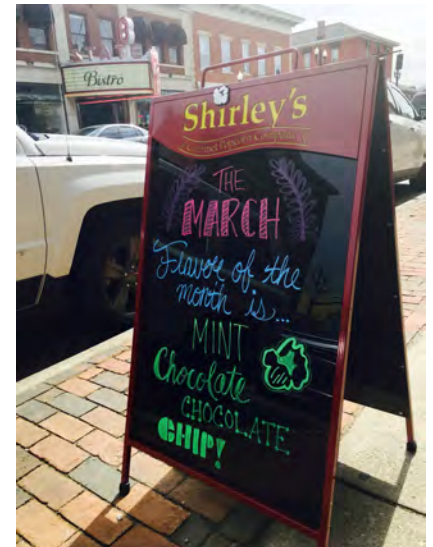 Bistro
Shirley's
Gourmet Popcorn Company
THE
MARCH
Flavor of the
month is...
MINT
Chocolate
CHOCOLATE
CHIP!